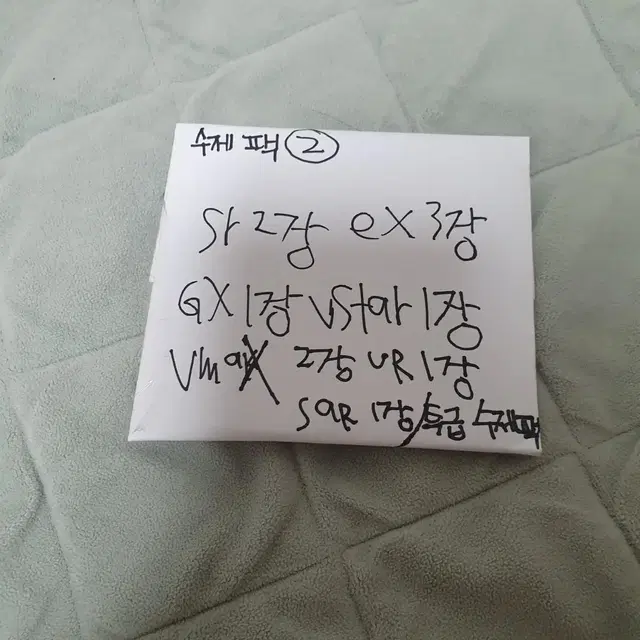 수제 팩 ②
Sr 2장 ex 3장
GX 1장 VStar 1장
Vmax 2장 UR 1장
Sar 1장/특급 수제팩